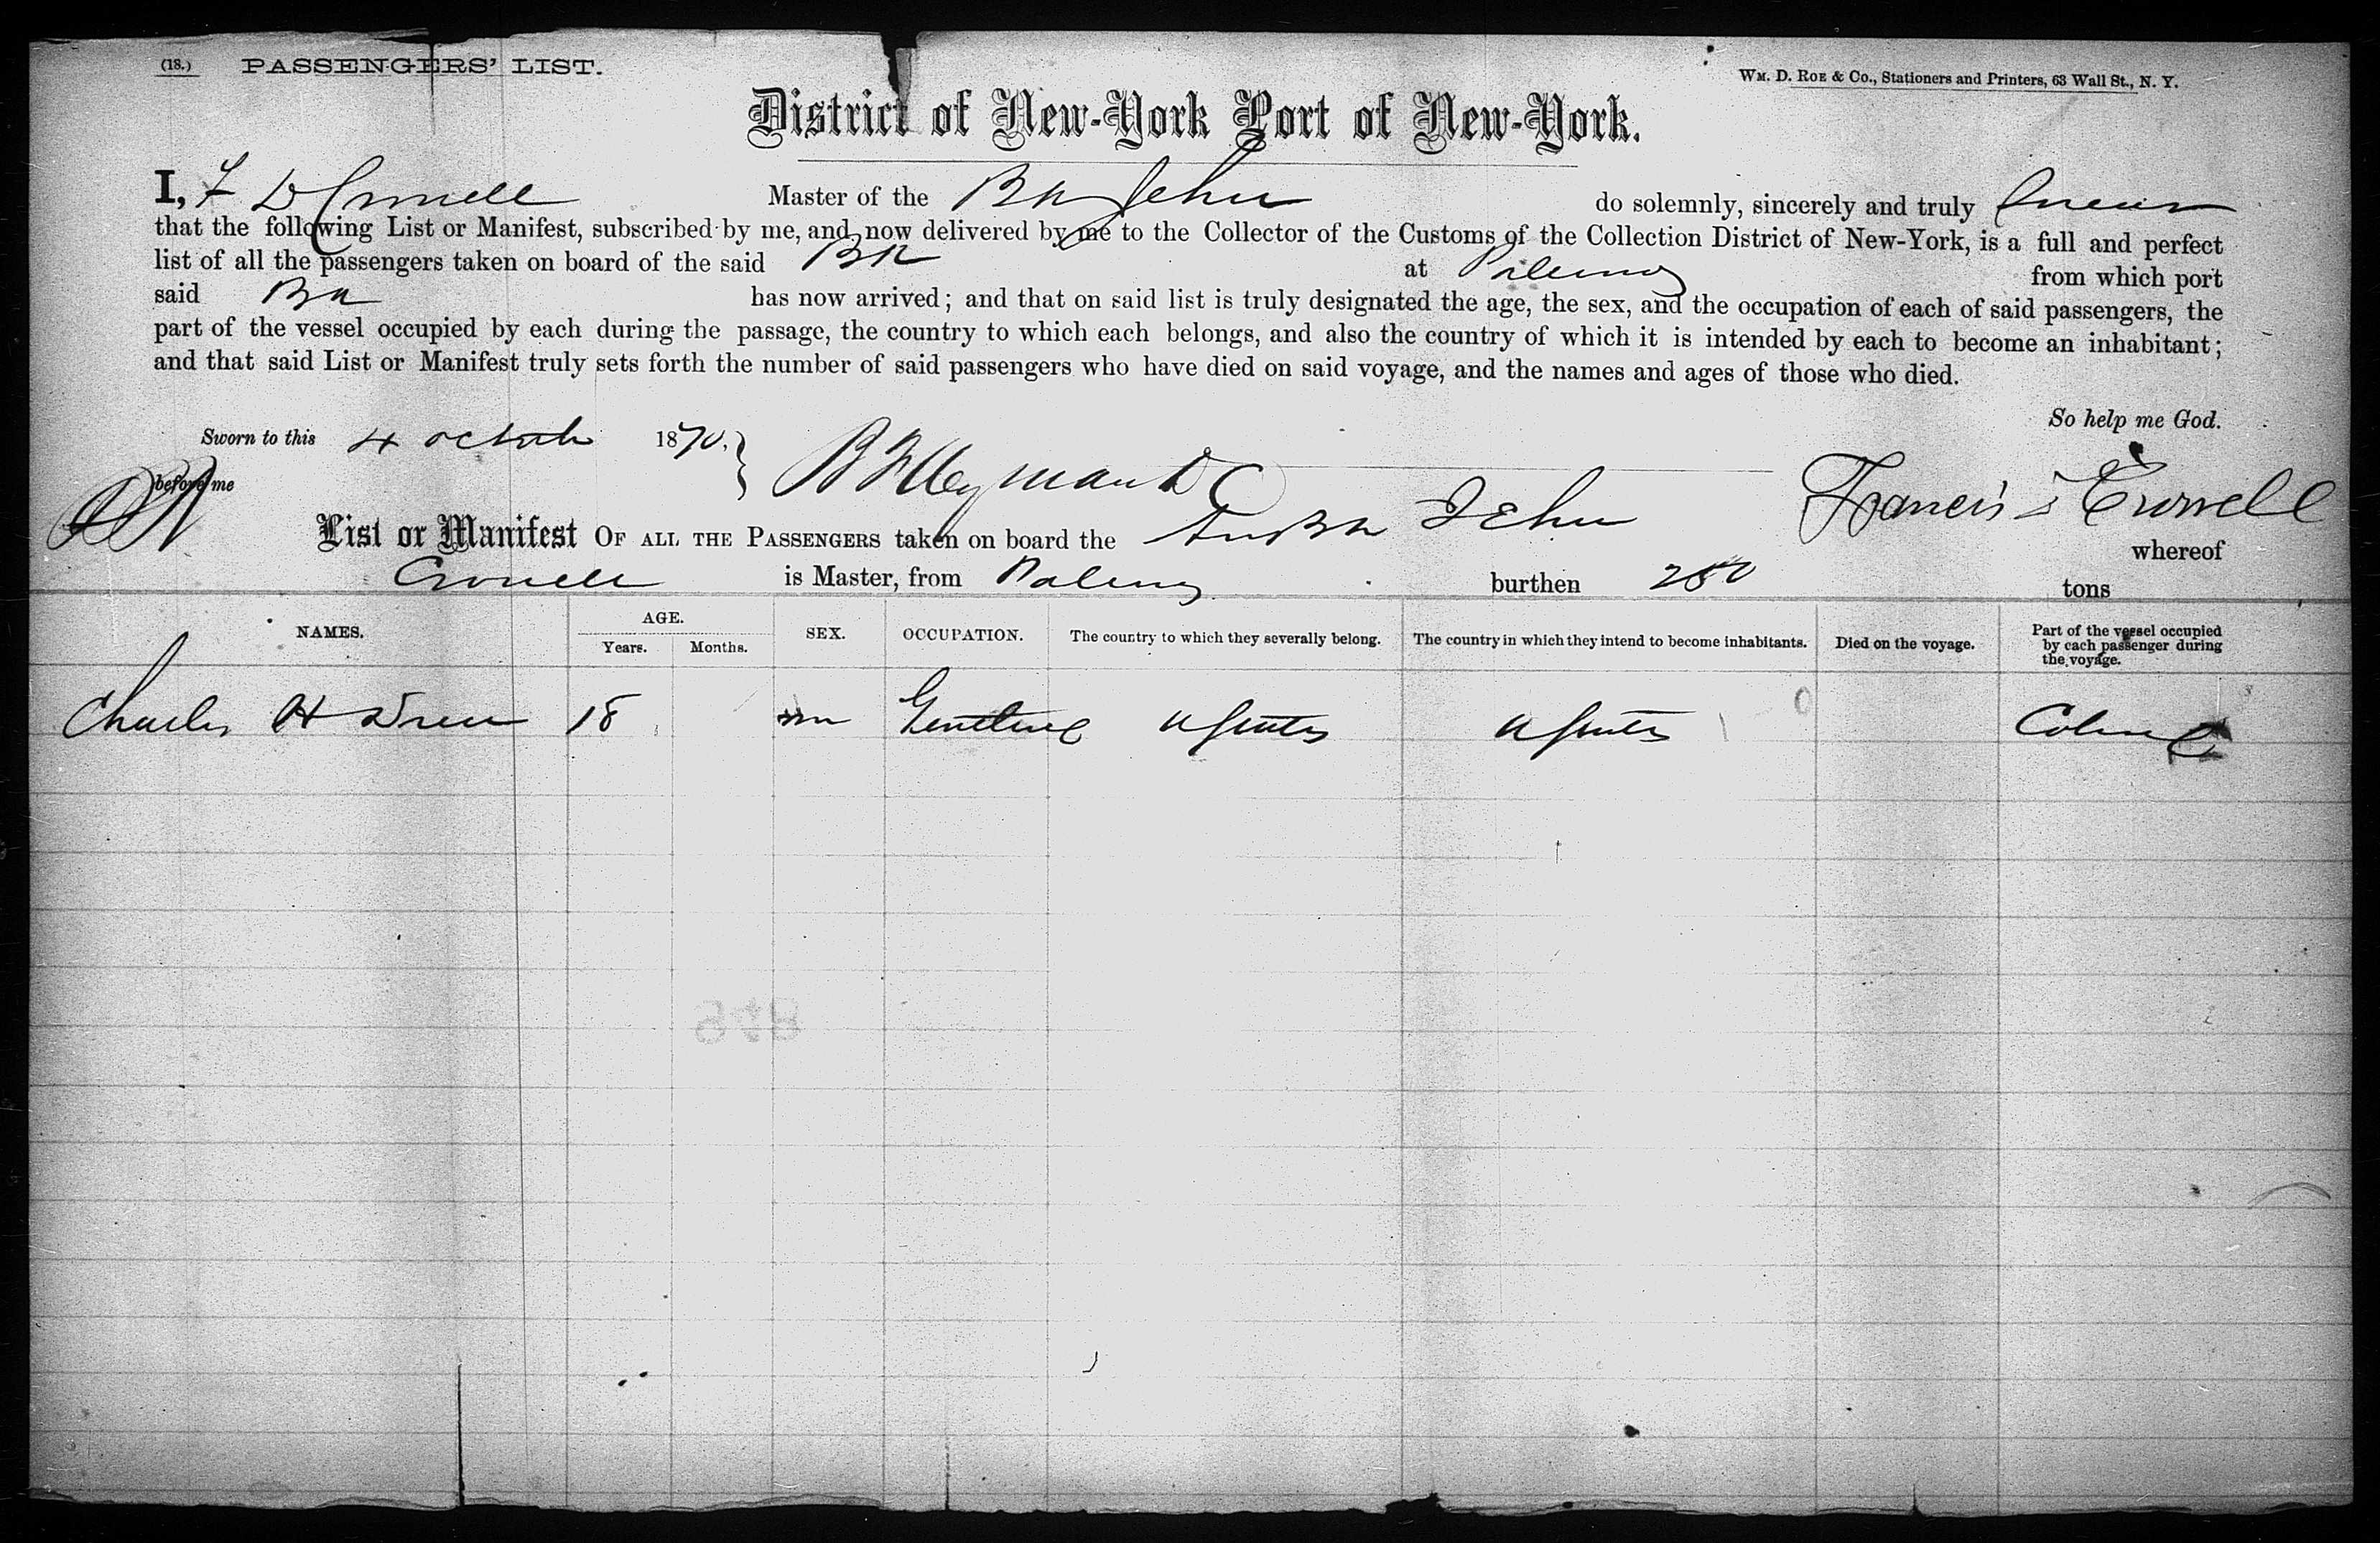 (18.) PASSENGERS' LIST.
WM. D. ROE & Co., Stationers and Printers, 63 Wall St., N. Y.
District of New-York Port of New-York.
I, F D Crowell Master of the Bk Jehu do solemnly, sincerely and truly Swear
that the following List or Manifest, subscribed by me, and now delivered by me to the Collector of the Customs of the Collection District of New-York, is a full and perfect
list of all the passengers taken on board of the said Bk at Palermo from which port
said Bk has now arrived; and that on said list is truly designated the age, the sex, and the occupation of each of said passengers, the
part of the vessel occupied by each during the passage, the country to which each belongs, and also the country of which it is intended by each to become an inhabitant;
and that said List or Manifest truly sets forth the number of said passengers who have died on said voyage, and the names and ages of those who died.
So help me God.
Sworn to this 4 October 1870.
before me
Francis Crowell
List or Manifest OF ALL THE PASSENGERS taken on board the Am Bk Jehu whereof
Crowell is Master, from Palermo burthen 250 tons
NAMES. AGE. Years. Months. SEX. OCCUPATION. The country to which they severally belong. The country in which they intend to become inhabitants. Died on the voyage. Part of the vessel occupied by each passenger during the voyage.
Charles H Drew 18 m U States U States Cabin